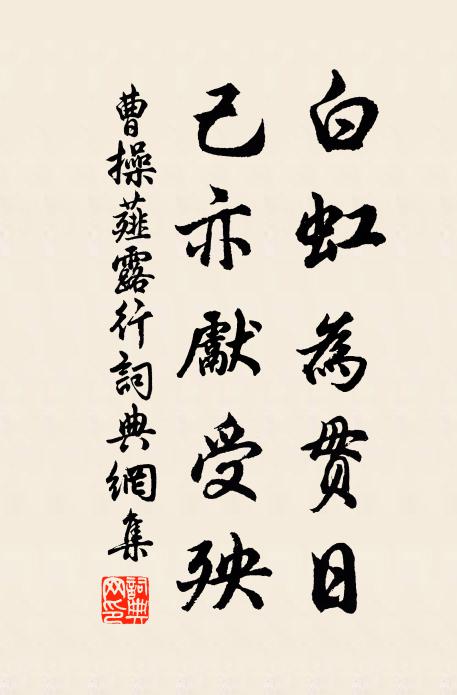 白虹為貫日
己亦獻受殃
曹操薤露行詞典網集
詞典
网印